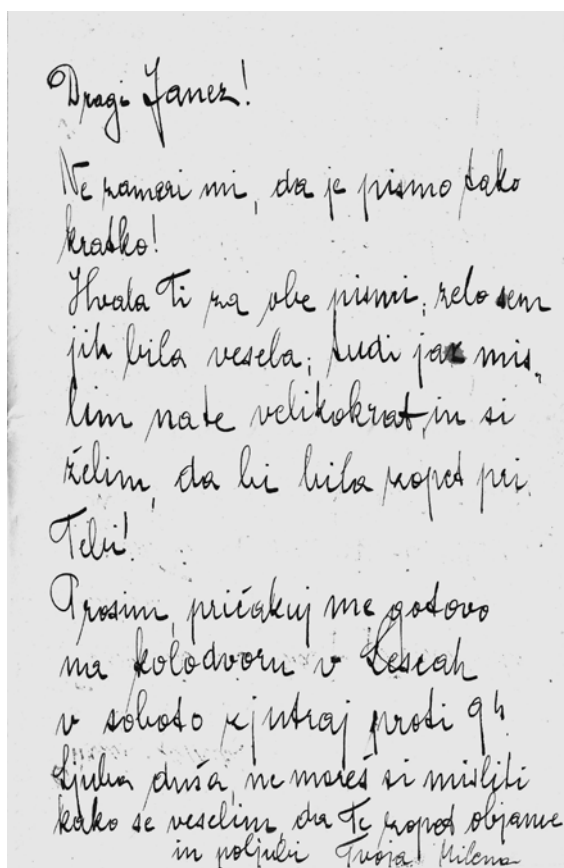 Dragi Janez!
Ne zameri mi, da je pismo tako
kratko!
Hvala Ti za obe pismi; zelo sem
jih bila vesela; tudi jaz mis-
lim nate velikokrat, in si
želim, da bi bila zopet pri
Tebi!
Prosim, pričakuj me gotovo
na kolodvoru v Lescah
v soboto zjutraj proti 9h.
Ljuba duša, ne moreš si misliti
kako se veselim, da Te zopet objame
in poljubi Tvoja Milena